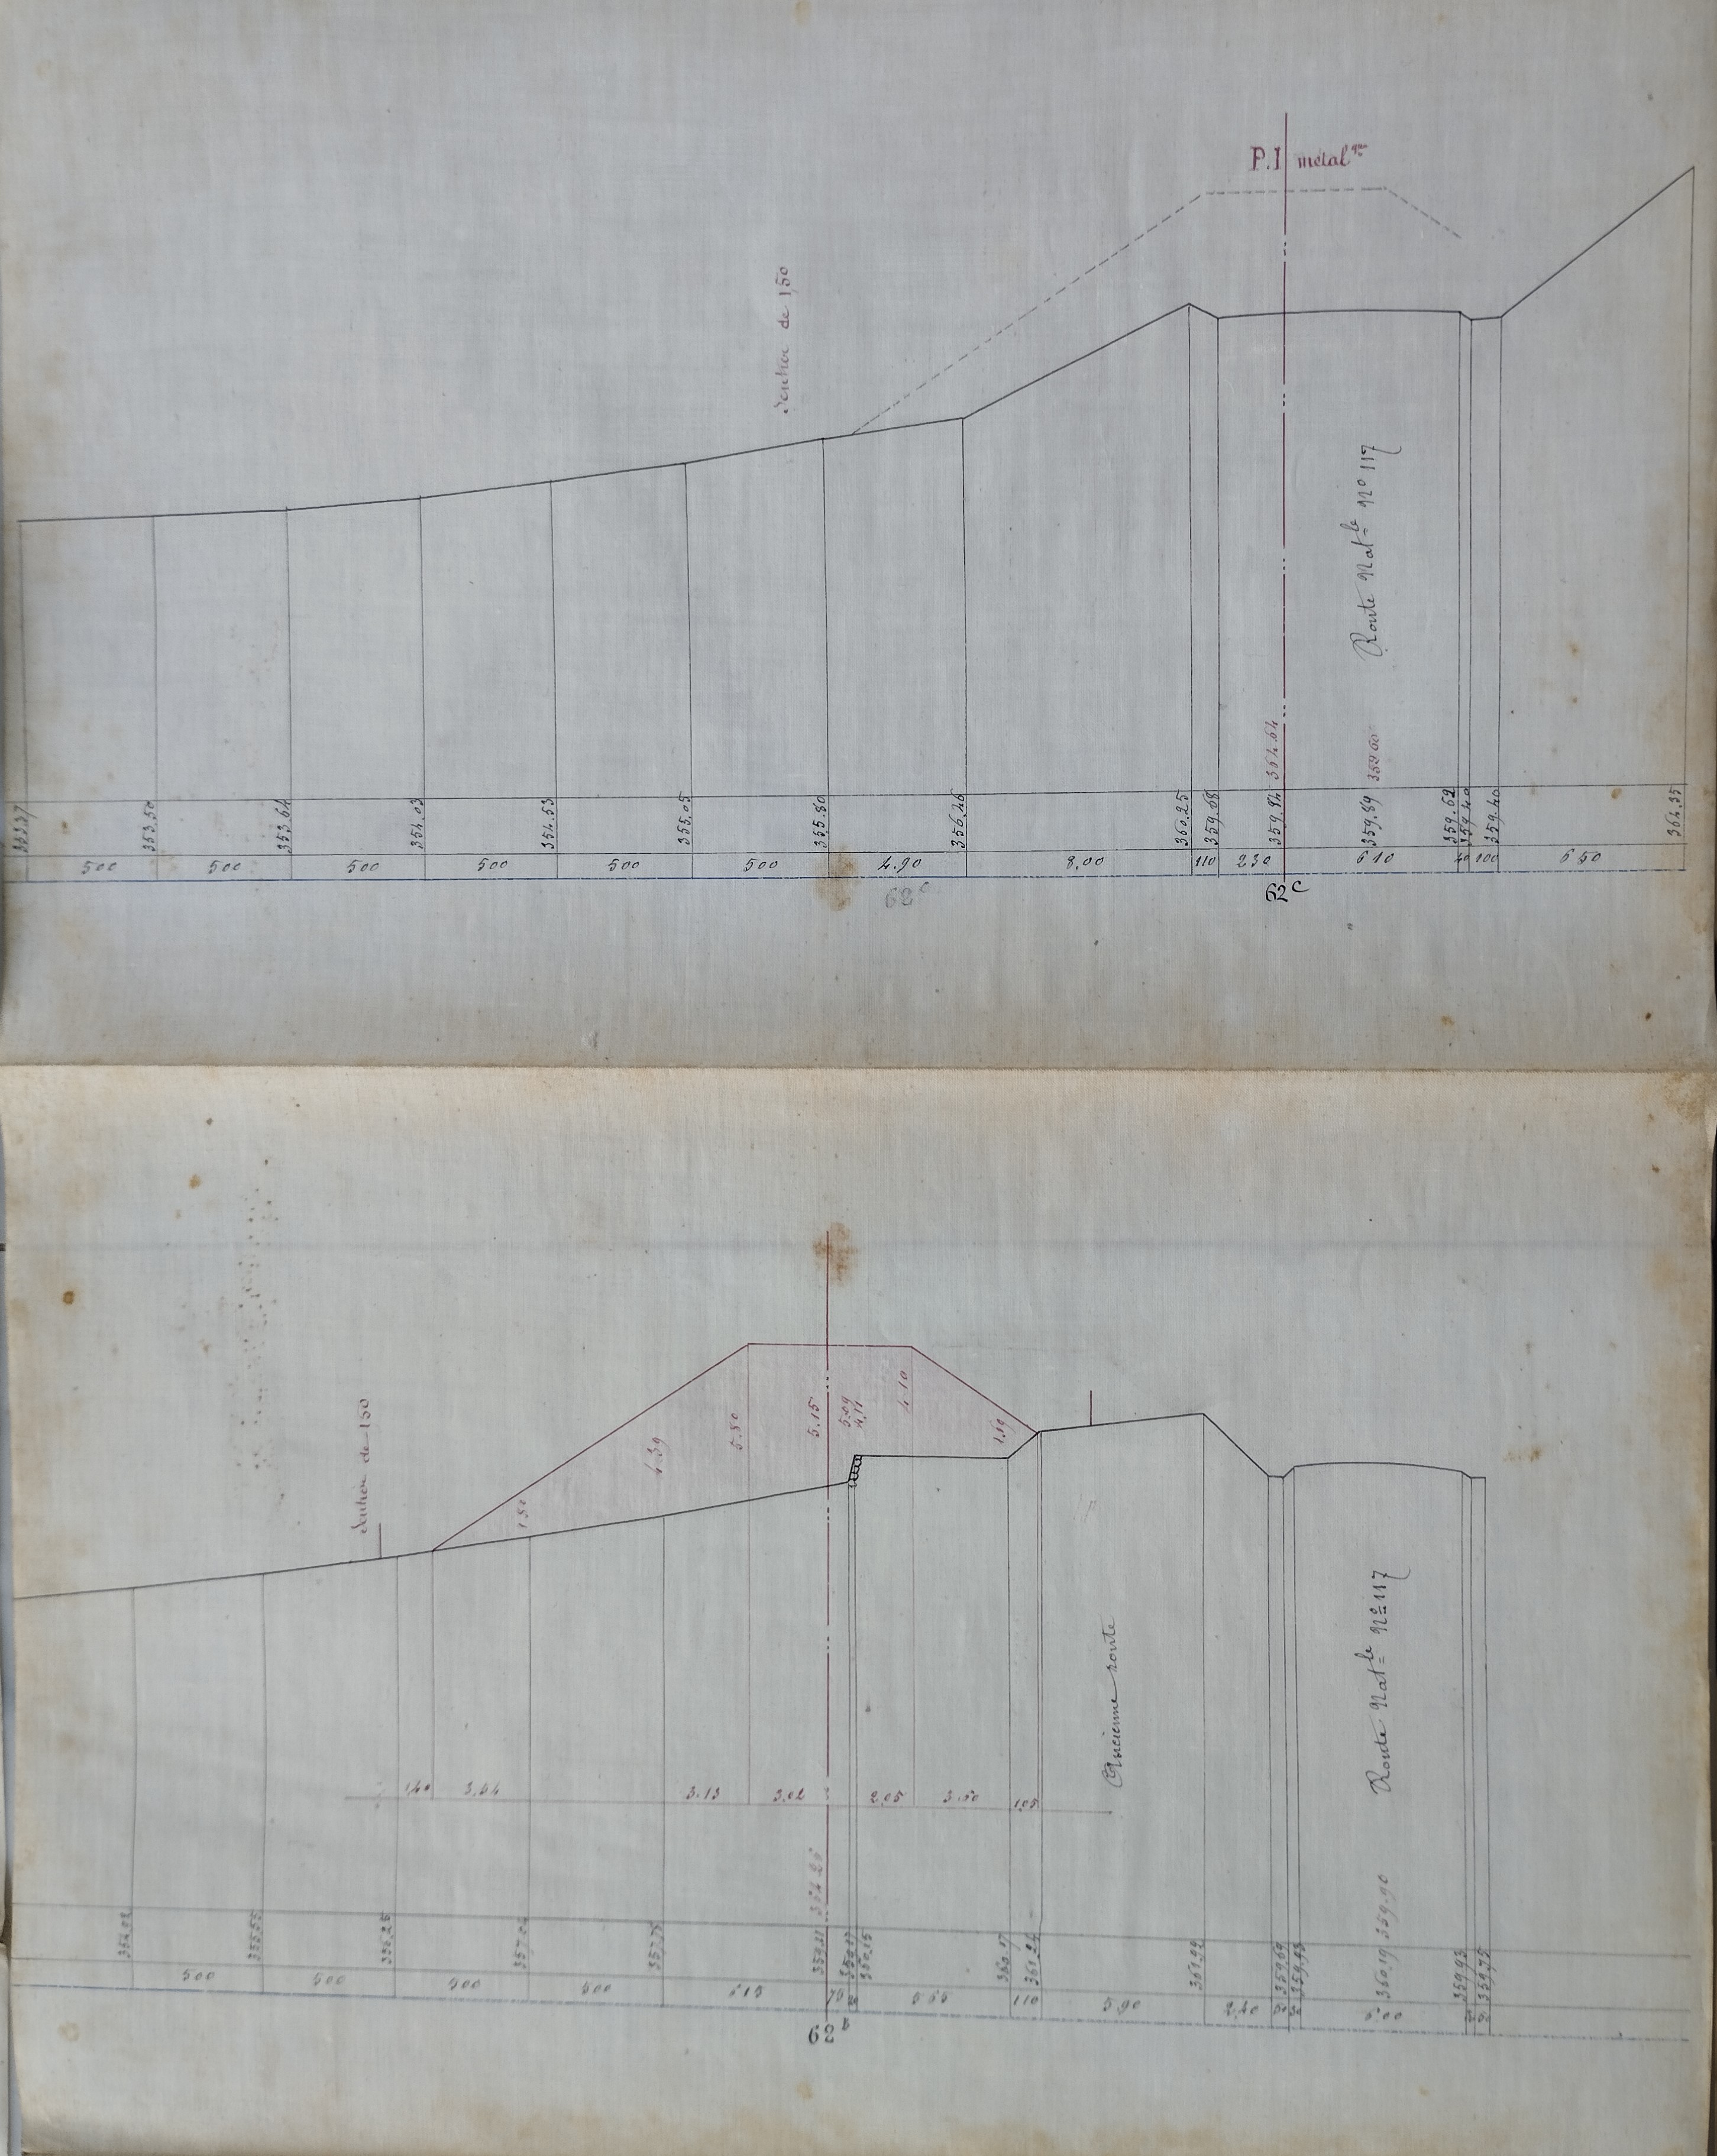 P.I métal^que
Sentier de 1,50
Route Nat^le N° 117
364.64
359.60
353.37
353.50
353.64
354.03
354.53
355.05
355.80
356.46
360.25
359.68
359.84
359.89
359.62
359.40
359.40
364.35
500
500
500
500
500
500
4.90
8.00
110
2 30
6 10
40
100
6 50
62^c
62^c
Sentier de 1,50
1.50
4.39
5.80
5.15
5.09
4.11
4.10
1.59
Ancienne route
Route Nat^le N° 117
1,40
3,44
3.13
3,02
2.05
3.60
1.05
364.26
359.90
355.55
356.25
357.02
357.75
359.11
360.15
360.17
361.24
361.99
359.69
359.93
360.19
359.93
359.75
500
500
500
500
6 15
75
5 65
110
5.90
2.40
6.00